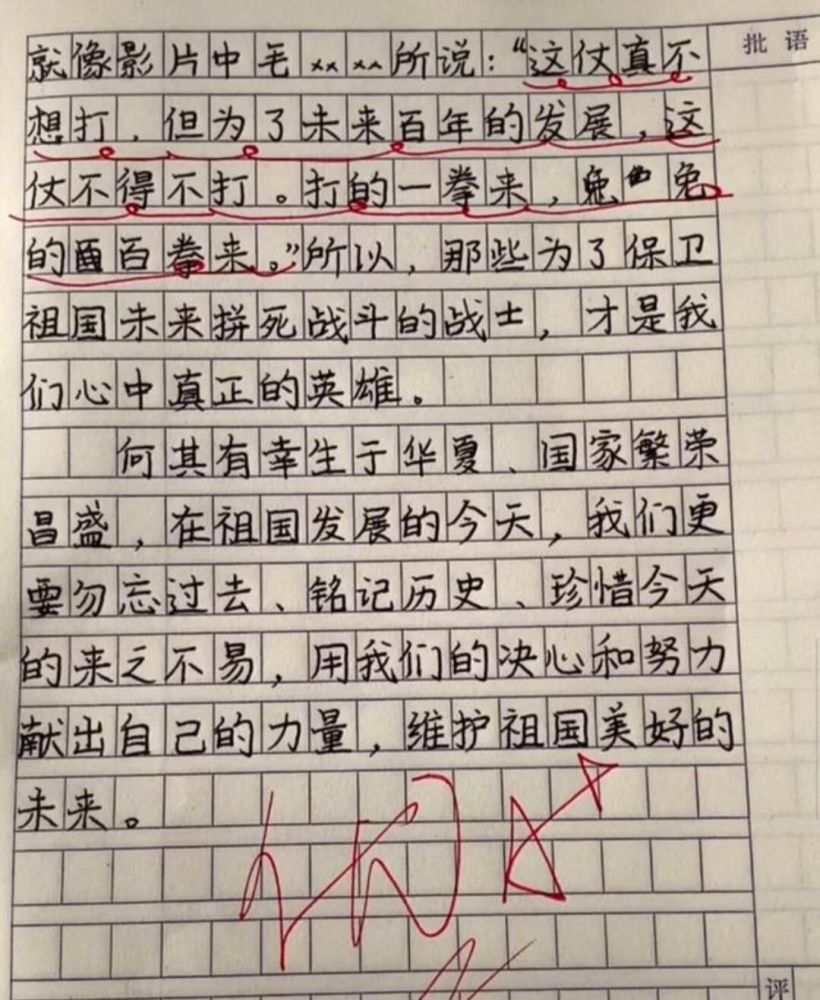 就像影片中毛××××所说：“这仗真不
批语
想打，但为了未来百年的发展，这
仗不得不打。打的一拳来，兔免
的百拳来。”所以，那些为了保卫
祖国未来拼死战斗的战士，才是我
们心中真正的英雄。
何其有幸生于华夏、国家繁荣
昌盛，在祖国发展的今天，我们更
要勿忘过去、铭记历史、珍惜今天
的来之不易，用我们的决心和努力
献出自己的力量，维护祖国美好的
未来。
A+
评